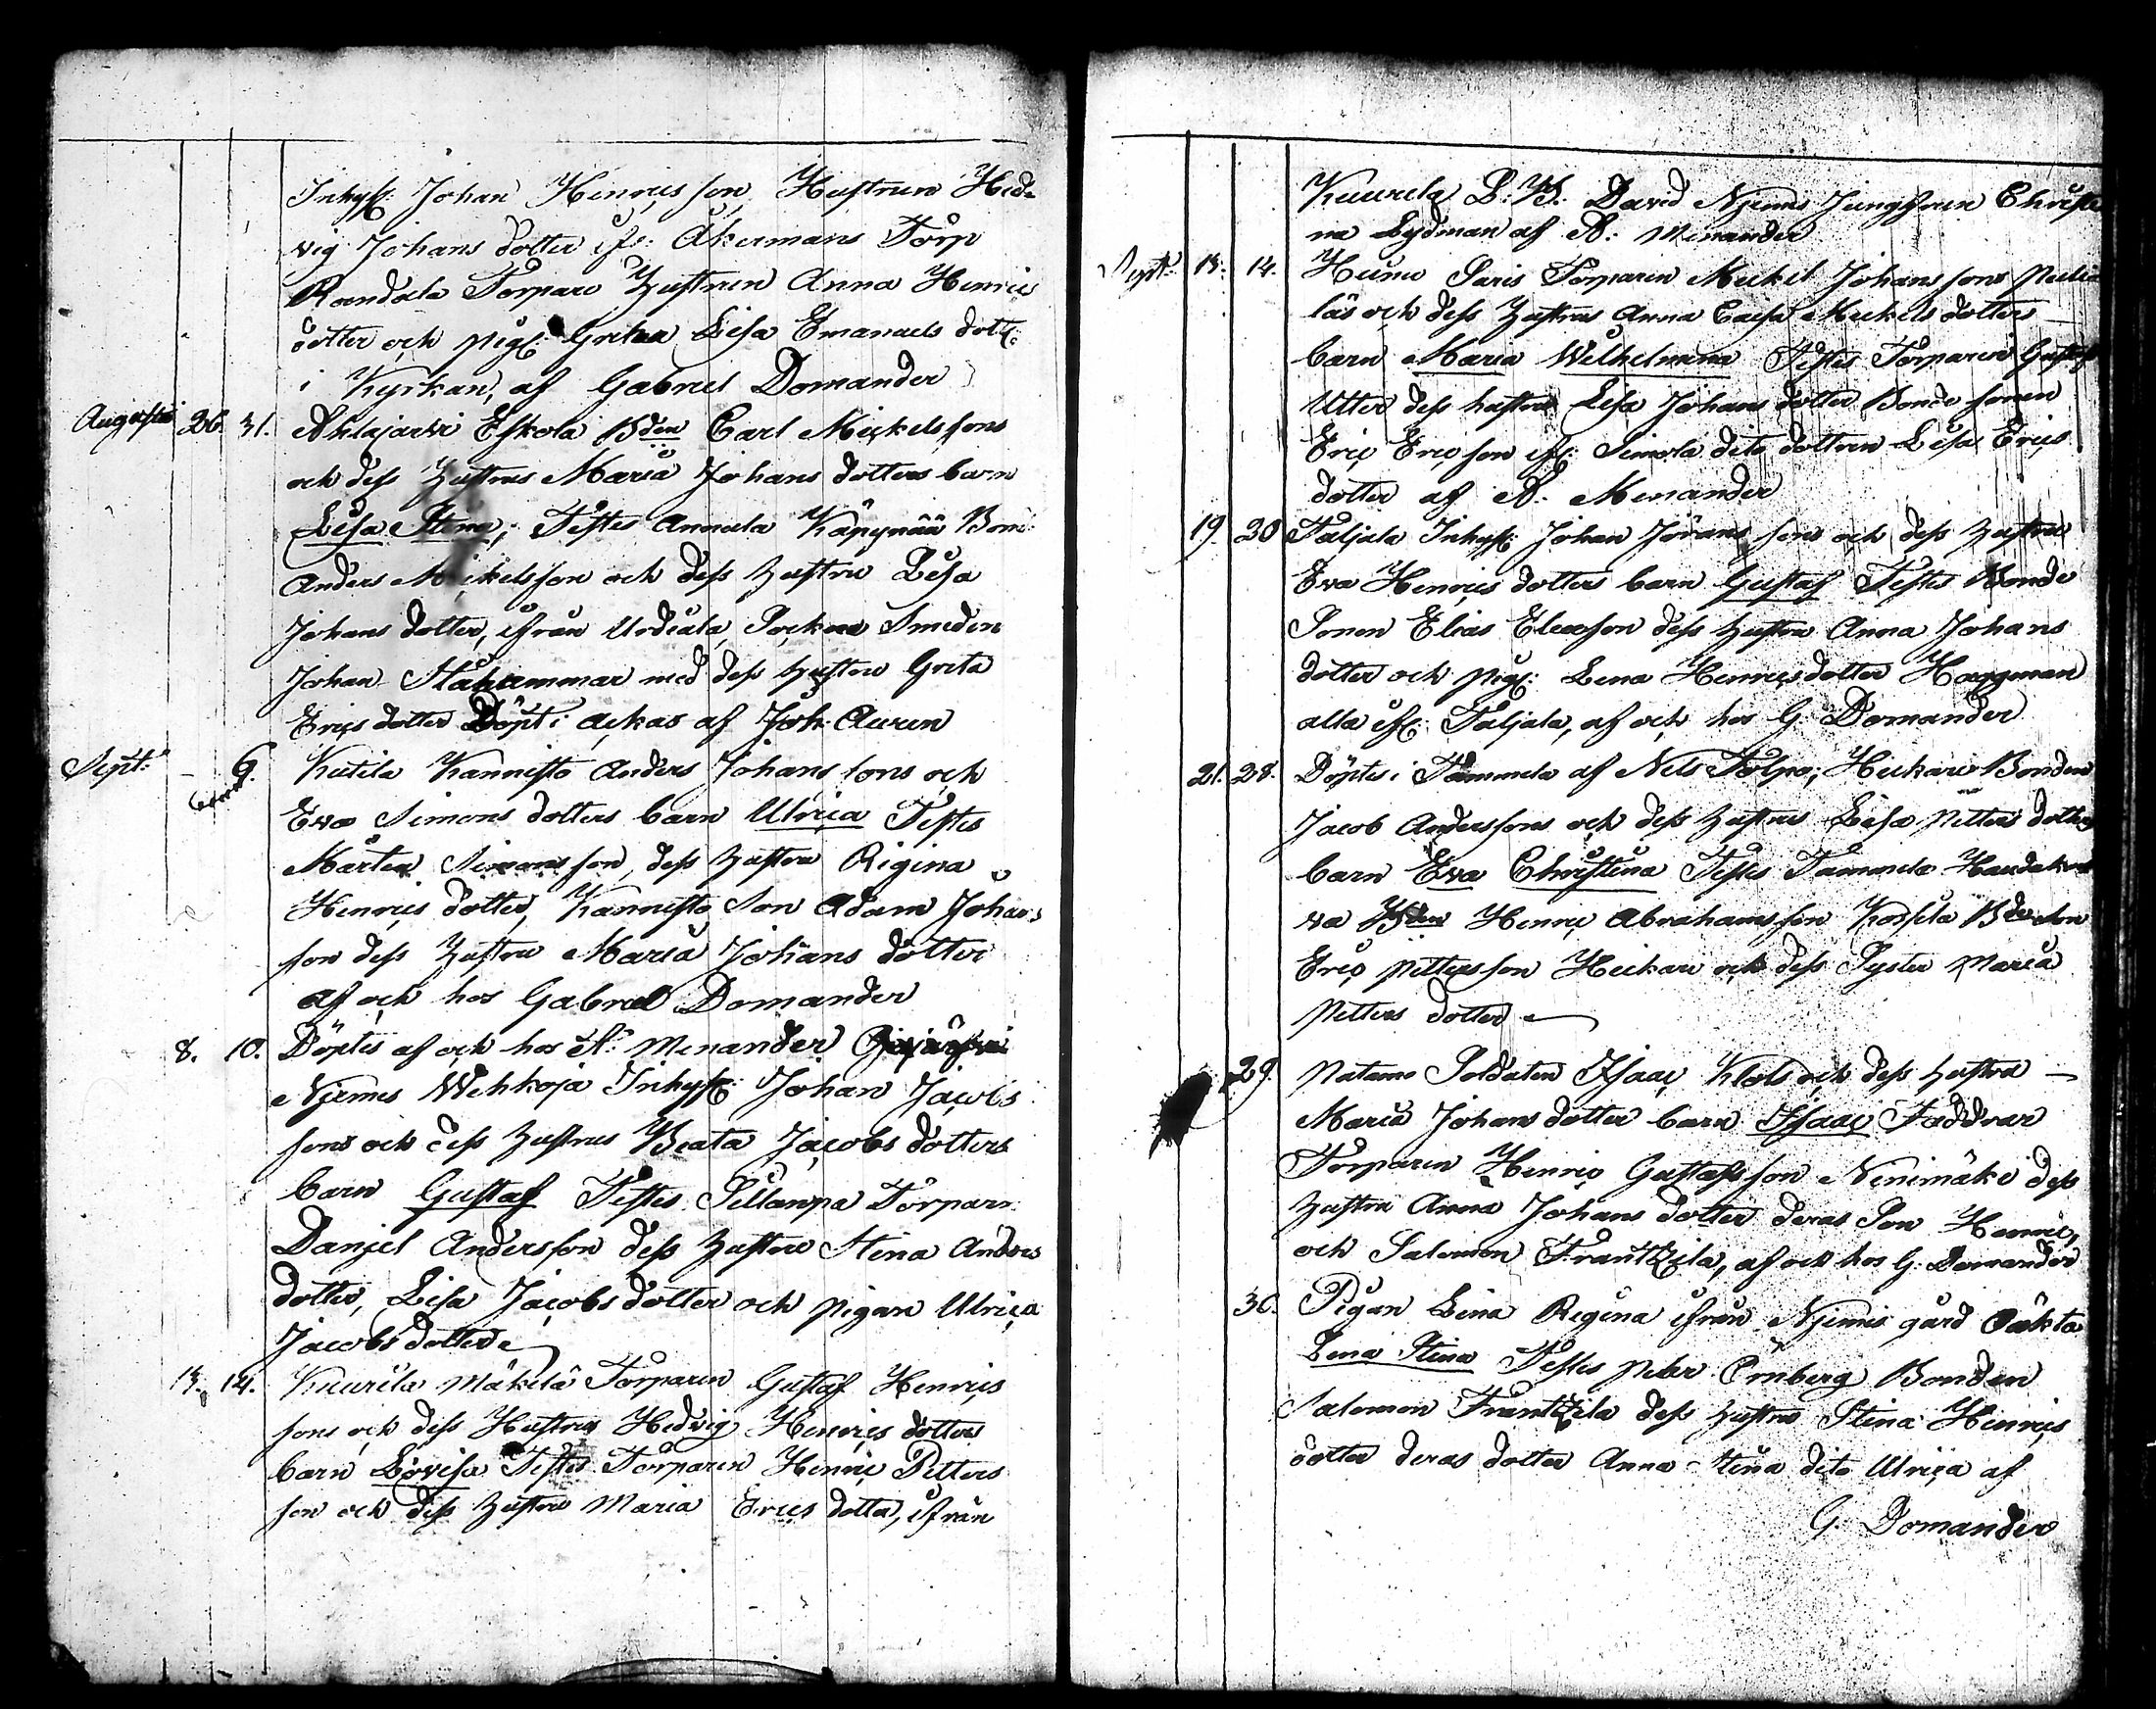 Inhyss: Johan Henrics son, Hustrun Hed-
vig Johans dotter ifr: Åkermans Torp
Torpare Hustrun Anna Henrics
dotter och pig: Greta Lisa Emanuels dott:
i Kyrkan, af Gabriel Domander
Augusti 26. 31. Ahlajarvi Eskola Bden Carl Mickels sons
och dess Hustrus Maria Johans dotters barn
Lisa Stina; Testes Annula Käpynää Bon:
Anders Mickelsson och dess hustru Lisa
Johans dotter, ifrån Urdiala Sockna Smeden
Johan Stålhammar med dess hustru Greta
Erics dotter Döpt i Ackas af Joh: Auren
Sept: – 6. Kutila Kannisto Anders Johans sons och
Eva Simons dotters barn Ulrica Testes
Mårten Simonsson, dess hustru Rigina
Henrics dotter, Kannisto Son Adam Johans
son dess hustru Maria Johans dotter
af och hos Gabriel Domander
8. 10. Döptes af och hos A: Menander
Njemis Wehkoja Inhyss: Johan Jacobs
sons och dess hustrus Beata Jacobs dotters
barn Gustaf Testes Sillanpä Torparn
Danjel Andersson dess hustru Stina Anders
dotter, Lisa Jacobs dotter och pigan Ulrica
Jacobs dotter
13. 14. Kuurila Mäkilä Torparen Gustaf Henrics
sons och dess Hustrus Hedvig Henrics dotters
barn Lovisa Testes Torparen Henric Petters
son och dess hustru Maria Erics dotter, ifrån
Kuurila B:B. David Njemis Jungfrun Christi
na Lydman af A: Menander
Sept: 13. 14. Huru Saris Torparen Mickel Johans sons
och dess hustrus Anna Caisa Mickels dotters
barn Maria Wilhelmina Testes Torparen Gustaf
Utter dess hustru Lisa Johans dotter Bonde sonen
Eric Ericsson ifr: Simola dito dottren Lisa Erics
dotter af A: Menander
19. 20 Taljala Inhyss: Johan Jörans sons och dess hustrus
Eva Henrics dotters barn Gustaf Testes Bonde
Sonen Elias Eleasson dess hustru Anna Johans
dotter och pig: Lena Henricsdotter Haggman
alla ifr: Taljala, af och hos G: Domander
21. 28. Döptes i Tammela af Nils Tolpo; Heikari Bonden
Jacob Anderssons och dess hustrus Lisa Petters dotters
barn Eva Christina Testes Tammela
Bden Henric Abrahamsson Bde son
Eric Pettersson Heikari och dess Syster Maria
Petters dotter
29. Patamo Soldaten Isaac Klots och dess hustru –
Maria Johans dotter barn Isaac Faddrar
Torparen Henric Gustafsson Ninimäki dess
hustru Anna Johans dotter deras Son Henric,
och Salomon Frantzila, af och hos G: Domander
30. Pigan Lena Regina ifrån Njemis gård Oäkta
Lena Stina Testes Peter Örnberg Bonden
Salomon Frantzila dess hustru Stina Henrics
dotter deras dotter Anna Stina dito Ulrica af
G. Domander